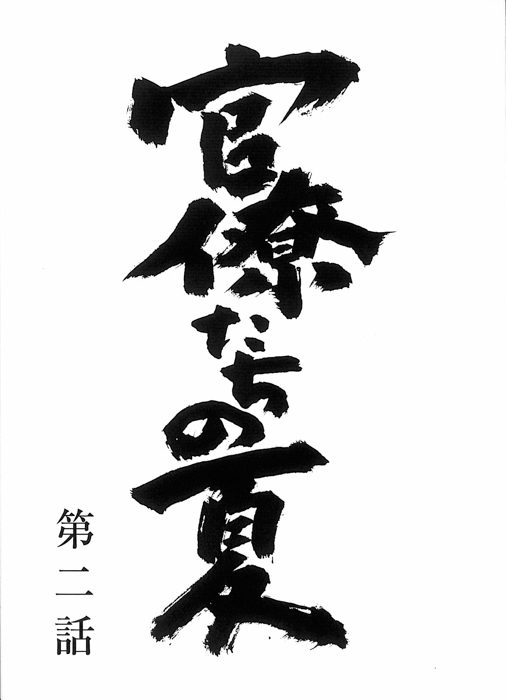 官僚たちの夏
第二話